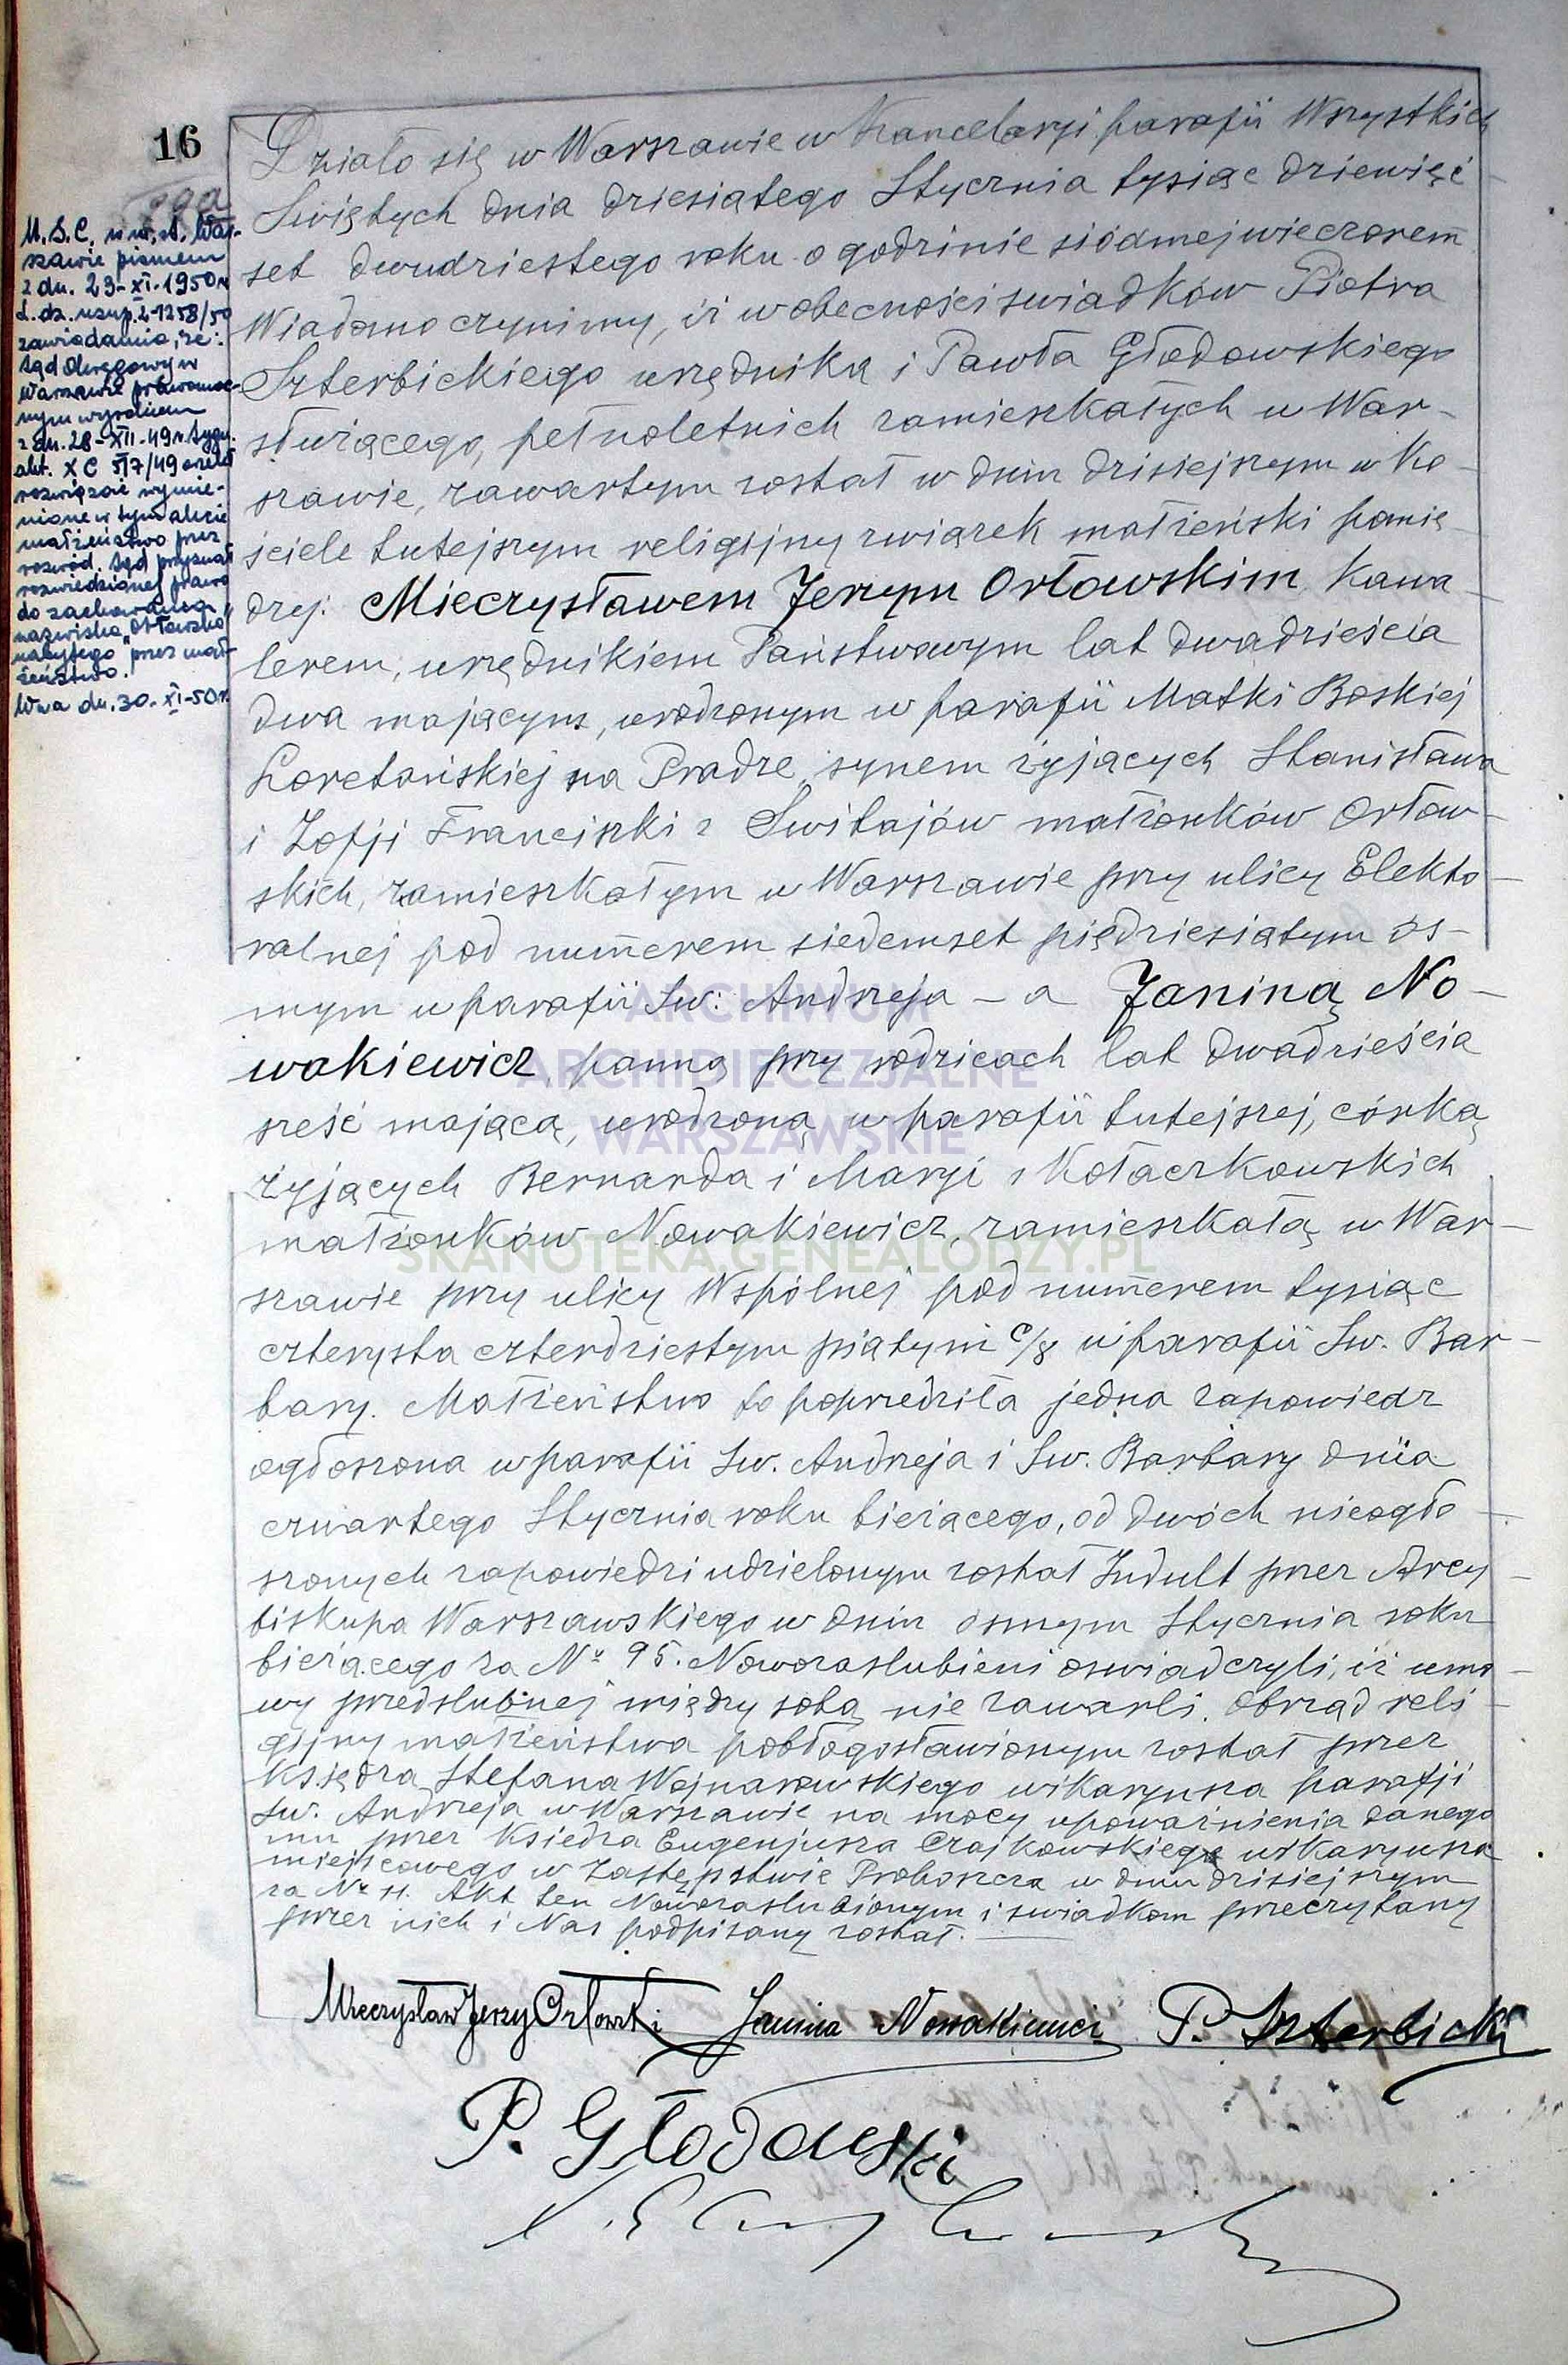 16
M.S.C. w m. st. War-
szawie pismem
z dn. 29-XI-1950 r.
L. dz. uzup. 2-1258/50
zawiadamia, że:
Sąd Okręgowy w
Warszawie prawomoc-
nym wyrokiem
z dn. 28-XII-49 r. sygn.
akt. X C 517/49 orzekł
rozwiązać wymie-
nione w tym akcie
małżeństwo przez
rozwód. Sąd przyznał
rozwiedzionej prawo
do zachowania
nazwiska "Orłowska"
nabytego przez mał-
żeństwo.
Wwa dn. 30-XI-50 r.
Działo się w Warszawie w Kancelaryi parafii Wszystkich
Świętych dnia dziesiątego Stycznia tysiąc dziewięć-
set dwudziestego roku o godzinie siódmej wieczorem
Wiadomo czynimy, iż w obecności swiadków Piotra
Szterbickiego urzędnika i Pawła Głodowskiego
służącego, pełnoletnich zamieszkałych w War-
szawie, zawartym został w dniu dzisiejszym w Ko-
ściele tutejszym religijny związek małżeński pomię-
dzy: Mieczysławem Jerzym Orłowskim, Kawa-
lerem, urzędnikiem Państwowym lat dwadzieścia
dwa mającym, urodzonym w parafii Matki Boskiej
Loretańskiej na Pradze, synem żyjących Stanisława
i Zofji Franciszki z Switajów małżonków Orłow-
skich, zamieszkałym w Warszawie przy ulicy Elekto-
ralnej pod numerem siedemset piędziesiątym ós-
mym w parafii Św: Andrzeja – a Janiną No-
wakiewicz, panną przy rodzicach lat dwadzieścia
sześć mającą, urodzoną w parafii tutejszej, córką
żyjących Bernarda i Maryi z Kołaczkowskich
małżonków Nowakiewicz, zamieszkałą w War-
szawie przy ulicy Wspólnej pod numerem tysiąc
czterysta czterdziestym piątym c/8 w parafii Św. Bar-
bary. Małżeństwo to poprzedziła jedna zapowiedz
ogłoszona w parafii Św. Andrzeja i Św. Barbary dnia
czwartego Stycznia roku bieżącego, od dwóch nieogło-
szonych zapowiedzi udzielonym został Indult przez Arcy-
biskupa Warszawskiego w dniu osmym Stycznia roku
bieżącego za № 95. Nowozaslubieni oswiadczyli, iż umo-
wy przedslubnej między sobą nie zawarli. Obrząd reli-
gijny małżeństwa pobłogosławionym został przez
Księdza Stefana Wojnarowskiego wikaryusza parafji
Św. Andrzeja w Warszawie na mocy upoważnienia danego
mu przez Księdza Eugenjusza Czajkowskiego wikaryusza
miejscowego w Zastępstwie Proboszcza w dniu dzisiejszym
za № 11. Akt ten Nowozaslubionym i swiadkom przeczytany
przez nich i Nas podpisany został.
Mieczysław Jerzy Orłowski Janina Nowakiewicz P. Szterbicki
P. Głodowski
ARCHIWUM
ARCHIDIECEZJALNE
WARSZAWSKIE
SKANOTEKA.GENEALODZY.PL